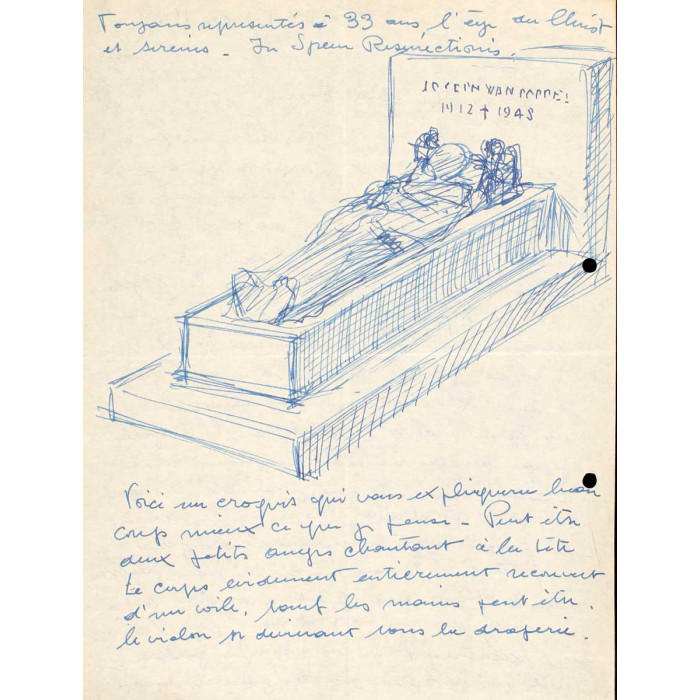 Toujours représentés à 33 ans, l'âge du Christ
et sereins – In Spem Resurectionis.
1912 † 1948
Voici un croquis qui vous expliquera beau
coup mieux ce que je pense – Peut être
deux petits anges chantant à la tête
Le corps évidement entièrement recouvert
d'un voile, sauf les mains peut être.
le violon se devinant sous la draperie.